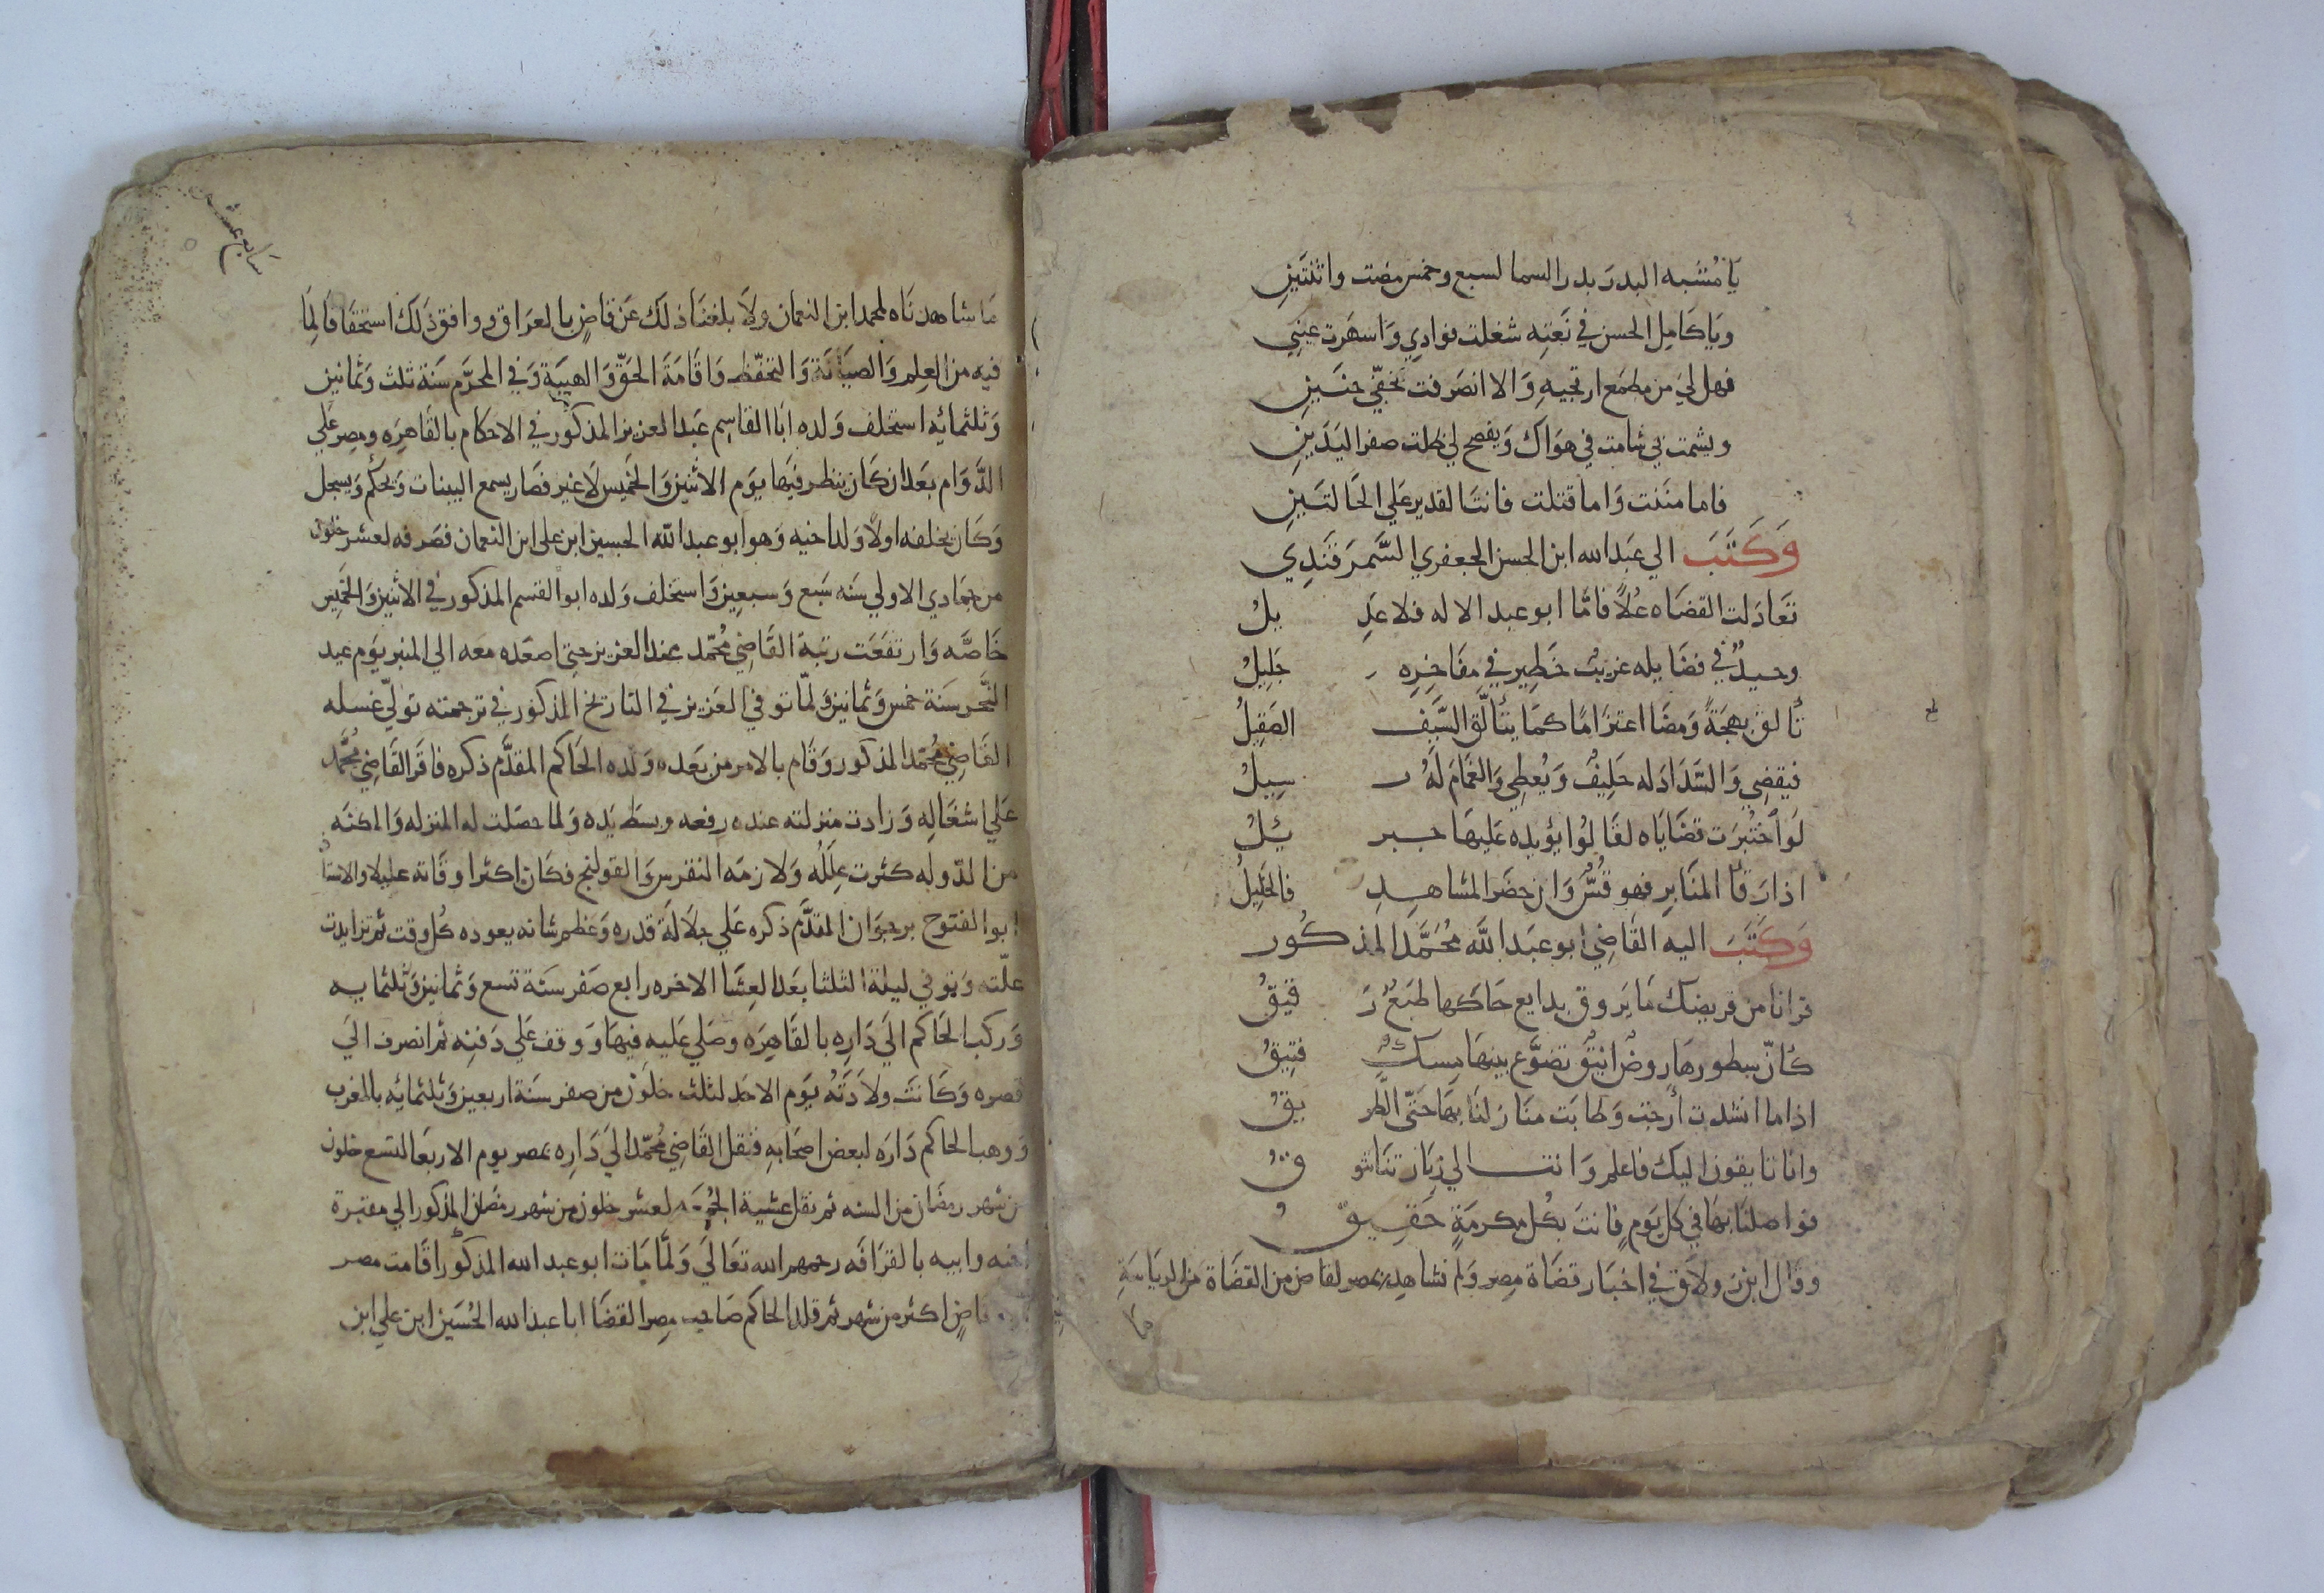 يَا مُشبه البدرَ بدر السما لسبع وخمس مضت واثنتَينِ
ويَا كَامِل الحسن في نَعتِه شغلت فوادِي وَاسهَرت عَيني
فهل لي من مطمَع ارتجيهِ وَالا انصَرفت بخفّي حنَينِ
ويشمت بي شامت في هوَاكَ وَيفصح لي ظلت صفر اليَدَينِ
فاما منَنت وَاما قتلت فانتَ القدير عَلي الحَالتَينِ
وَكَتَبَ الي عَبد الله ابن الحسن الجعفري السَّمرَقَندِي
تعَادَلت القضَاه عُلاً فامّا ابو عبد الاله فلا عَدِيلُ
وحيدٌ في فضَايله غريبٌ خَطِير في مفَاخِرِه جَلِيلُ
تَألق بهجَةً وَمضَا اعتزَامًا كمَا يتَألّق السَّيف الصَقِيلُ
فيقضِي وَالسَّدَاد له حَلِيفٌ وَيُعطِي وَالغَمَام لَهُ رسِيلُ
لَو اُختُبرَت قضَايَاه لقَالُوا يؤيده عَليهَا جبرئيلُ
اذا رَقا المنَابِرِ فهو قُسٌّ وَان حضَر المشاهِدِ فالخَلِيلُ
وَكَتَبَ اليه القَاضِي ابو عَبَد اللَّه مُحَمَّد المذكُور
قرانا من قريضك مَا يَروق بدايع حَاكَها طَبَعٌ رَقيقُ
كأنّ سطورهَا روضٌ انيقٌ تضوَّع بينهَا مِسكٌ فتِيقُ
اذا ما انشدت أرجت وَطَابَت منَازلنَا بهَا حَتّى الطَّريقُ
وانا تايقون اليك فاعلم وَانتَ الي زيَارتنَا تتوقُ
فواصلنَا بهَا في كل يَومٍ فانتَ بكُل مكرمَةٍ حَقِيقُ
وقال ابن زولاق في اخبَار قضَاة مِصر وَلم نشاهد بمصر لقاض من القضَاة من الرياسَةِ
مَا شاهدنَاه لمحمد ابن النعمان ولَا بلغنَا ذلكَ عَن قاضٍ بالعرَاق ووافق ذلك استحقَاقَا لِمَا
فيه من العِلم وَالصيَانَة وَالتحَفّظ وَاقَامَةَ الحَقّ وَالهيبَة وَفي المحرّم سَنَة ثلث وَثمانين
وَثلثمائه استخلف وَلده ابَا القاسِم عَبد العزيز المذكور في الاحكام بالقَاهِرَه ومِصر عَلي
الدَّوَام بَعد ان كَان ينظر فيَهَا يوَم الاثنين وَالخَميس لَا غير فصَار يسمع البينات وَيحكُم وَيسجل
وَكَان يخلفه اولًا وَلد اخيه وَهو ابو عبد الله الحسين ابن على ابن النعمان فصَرفه لعشر خلون
من جمَادي الاولي سَنَه سَبع وَسبعين وَاستخلف وَلده ابو القسم المذكور في الاثنين وَالخَميس
خَاصّه وَارتفَعَت رتبة القَاضِي مُحَمّد عند العزيز حتى اصعَده معَه الي المنبر يوَم عيد
النَّحر سَنَة خمس وَثمانين وَلمّا توفي العَزيز في التاريخ المذكور في ترجمته توَلّي غسله
القَاضِي مُحَمّد المذكور وَقَام بالامر من بَعده وَلده الحَاكم المقدَّم ذكره فاقَر القَاضِي مُحَمَّد
عَلي اشغَالِه وَزَادت منزلته عنده رفعه وبسَط يَده وَلما حصَلت له المنزله وَالمكنَه
من الدّوله كثرت عِلَلُه وَلَازمَه النقرس وَالقولنج فكَان اكثر اوقَاته عليلا والاستاذ
ابو الفتوح برجوَان المقدَّم ذكره عَلي جلَالَة قدره وَعظم شانه يعوده كُل وقت ثم تزايدت
علّته وَتوفي ليلة الثلثا بعَد العِشَا الاخره رابع صَفر سَنَة تسع وَثمانين وَثلثمايه
وَركب الحَاكم اليَ دَارِه بالقَاهِرَه وصَلي عَليه فيهَا وَوقف عَلي دَفنِه ثم انصرف اليَ
قصره وَكَانتَ ولَادَتُه يوَم الاحَد لثلث خلَون من صفر سَنَة اربعين وَثلثمائه بالمغرب
وَوهب الحاكم دَارَه لبعض اصحَابِهِ فنقل القَاضِي مُحَمّد اليَ دَارِه بمصر يوم الاربَعا لتسع خلون
من شهر رمضَان من السنه ثم نقل عشية الجُمعَه لعشر خلون من شهر رمضَان المذكور الي مقبرة
اخيه وابيه بالقرَافَه رحمهم الله تعَالَي وَلمَّا مَات ابو عبد الله المذكور اقَامت مصر
بغير قاضٍ اكثر من شهر ثم قلد الحاكم صَاحِب مِصر القضَا ابا عبد الله الحُسَين ابن علي ابن
سَابع عشر